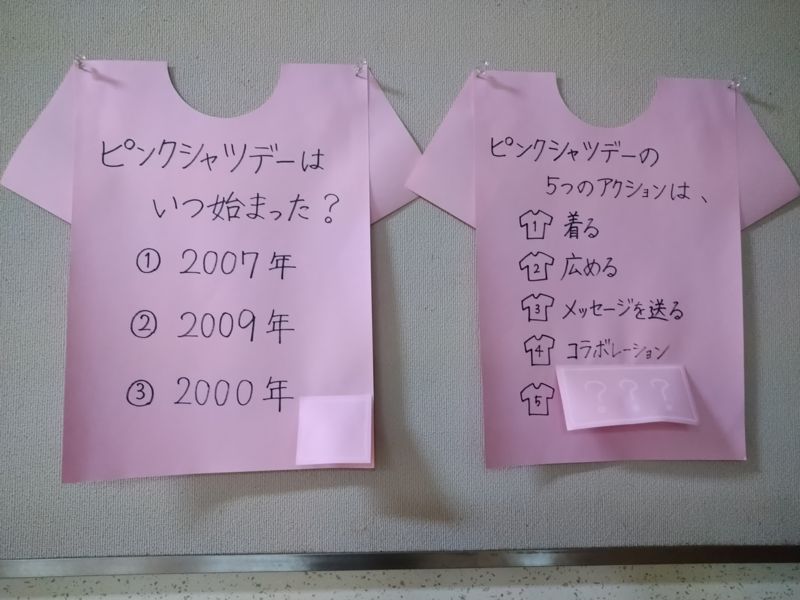 ピンクシャツデーは
いつ始まった？
① 2007年
② 2009年
③ 2000年
ピンクシャツデーの
5つのアクションは、
1 着る
2 広める
3 メッセージを送る
4 コラボレーション
5 ？？？